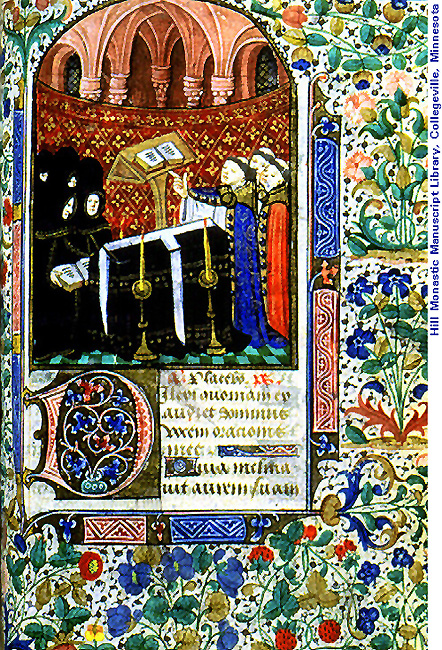 Placebo.
Dilexi quoniam ex
audiet dominus
vocem orationis
mee.
Quia inclina
uit aurem suam
Hill Monastic Manuscript Library, Collegeville, Minnesota